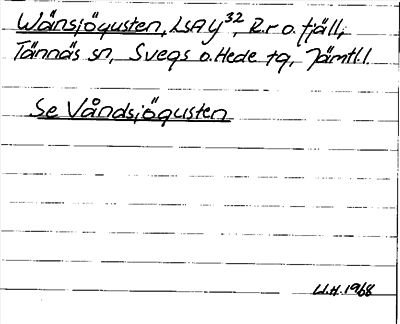 Wänsjögusten, LSA Y 32, R.r o. fjäll,
Tännäs sn, Svegs o. Hede tg, Jämtl.l.
Se Våndsjögusten
U.H. 1968